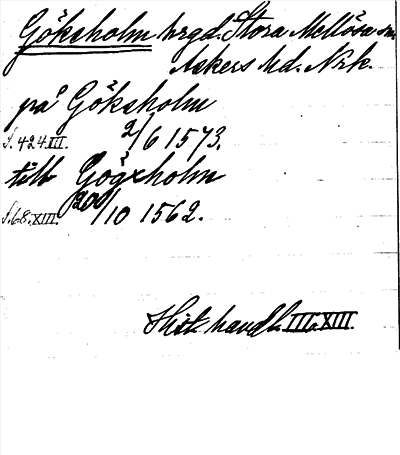 Göksholm hrgd. Stora Mellösa sn.
Askers hd. Nrk.
på Göksholm
S. 424.III. 2/6 1573.
till Gögxholm
S. 68. XIII. 20/10 1562.
Hist. handl. III. XIII.